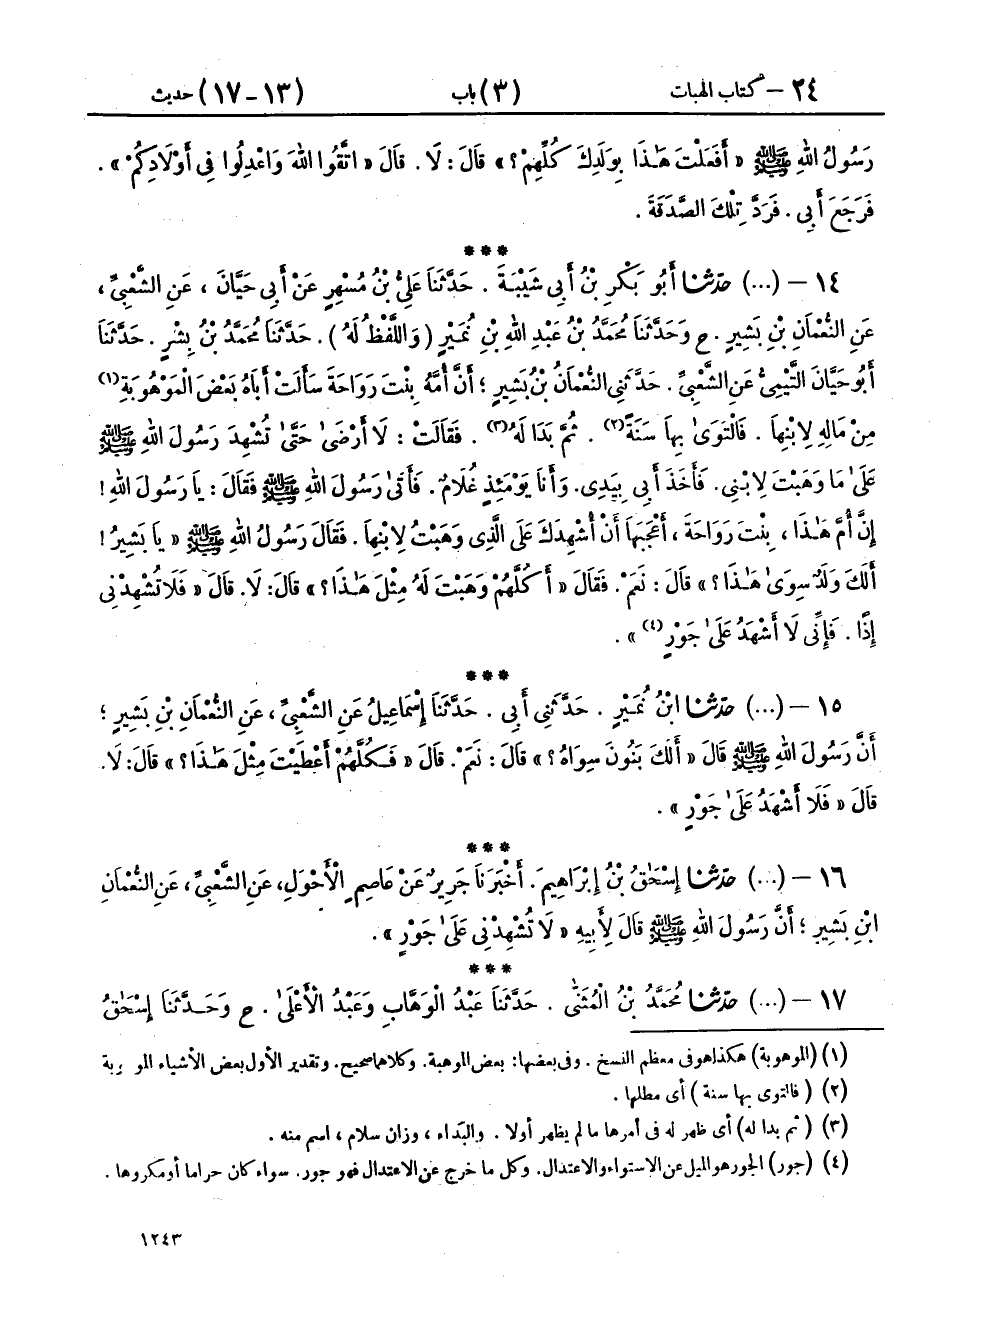 ٢٤ – كتاب الهبات (٣) باب (١٣–١٧) حديث
رَسُولُ اللهِ ﷺ « أَفَعَلْتَ هَـٰذَا بِوَلَدِكَ كُلِّهِمْ ؟ » قَالَ : لَا . قَالَ « اتَّقُوا اللهَ وَاعْدِلُوا فِى أَوْلَادِكُمْ » .
فَرَجَعَ أَبِى . فَرَدَّ تِلْكَ الصَّدَقَةَ .
***
١٤ – (...) حدّثنا أَبُو بَكْرِ بْنُ أَبِى شَيْبَةَ . حَدَّثَنَا عَلِىُّ بْنُ مُسْهِرٍ عَنْ أَبِى حَيَّانَ ، عَنِ الشَّعْبِىِّ ،
عَنِ النُّعْمَانِ بْنِ بَشِيرٍ . ح وَحَدَّثَنَا مُحَمَّدُ بْنُ عَبْدِ اللهِ بْنِ نُمَيْرٍ ( وَاللَّفْظُ لَهُ ) . حَدَّثَنَا مُحَمَّدُ بْنُ بِشْرٍ . حَدَّثَنَا
أَبُو حَيَّانَ التَّيْمِىُّ عَنِ الشَّعْبِىِّ . حَدَّثَنِى النُّعْمَانُ بْنُ بَشِيرٍ ؛ أَنَّ أُمَّهُ بِنْتَ رَوَاحَةَ سَأَلَتْ أَبَاهُ بَعْضَ الْمَوْهُوبَةِ (١)
مِنْ مَالِهِ لِابْنِهَا . فَالْتَوَىٰ بِهَا سَنَةً (٢) . ثُمَّ بَدَا لَهُ (٣) . فَقَالَتْ : لَا أَرْضَىٰ حَتَّىٰ تُشْهِدَ رَسُولَ اللهِ ﷺ
عَلَىٰ مَا وَهَبْتَ لِابْنِى . فَأَخَذَ أَبِى بِيَدِى . وَأَنَا يَوْمَئِذٍ غُلَامٌ . فَأَتَىٰ رَسُولَ اللهِ ﷺ فَقَالَ : يَا رَسُولَ اللهِ !
إِنَّ أُمَّ هَـٰذَا ، بِنْتَ رَوَاحَةَ ، أَعْجَبَهَا أَنْ أُشْهِدَكَ عَلَى الَّذِى وَهَبْتُ لِابْنِهَا . فَقَالَ رَسُولُ اللهِ ﷺ « يَا بَشِيرُ !
أَلَكَ وَلَدٌ سِوَىٰ هَـٰذَا ؟ » قَالَ : نَعَمْ . فَقَالَ « أَكُلَّهُمْ وَهَبْتَ لَهُ مِثْلَ هَـٰذَا ؟ » قَالَ : لَا . قَالَ « فَلَا تُشْهِدْنِى
إِذًا . فَإِنِّى لَا أَشْهَدُ عَلَىٰ جَوْرٍ (٤) » .
***
١٥ – (...) حدّثنا ابْنُ نُمَيْرٍ . حَدَّثَنِى أَبِى . حَدَّثَنَا إِسْمَاعِيلُ عَنِ الشَّعْبِىِّ ، عَنِ النُّعْمَانِ بْنِ بَشِيرٍ ؛
أَنَّ رَسُولَ اللهِ ﷺ قَالَ « أَلَكَ بَنُونَ سِوَاهُ ؟ » قَالَ : نَعَمْ . قَالَ « فَكُلَّهُمْ أَعْطَيْتَ مِثْلَ هَـٰذَا ؟ » قَالَ : لَا .
قَالَ « فَلَا أَشْهَدُ عَلَىٰ جَوْرٍ » .
***
١٦ – (...) حدّثنا إِسْحَـٰقُ بْنُ إِبْرَاهِيمَ . أَخْبَرَنَا جَرِيرٌ عَنْ عَاصِمٍ الْأَحْوَلِ ، عَنِ الشَّعْبِىِّ ، عَنِ النُّعْمَانِ
ابْنِ بَشِيرٍ ؛ أَنَّ رَسُولَ اللهِ ﷺ قَالَ لِأَبِيهِ « لَا تُشْهِدْنِى عَلَىٰ جَوْرٍ » .
***
١٧ – (...) حدّثنا مُحَمَّدُ بْنُ الْمُثَنَّىٰ . حَدَّثَنَا عَبْدُ الْوَهَّابِ وَعَبْدُ الْأَعْلَىٰ . ح وَحَدَّثَنَا إِسْحَـٰقُ
(١) (الموهوبة) هكذا هو فى معظم النسخ . وفى بعضها : بعض الموهبة . وكلاهما صحيح . وتقدير الأول بعض الأشياء
(٢) ( فالتوى بها سنة ) أى مطلها .
(٣) ( ثم بدا له ) أى ظهر له فى أمرها ما لم يظهر أولا . والبَداء ، وزان سلام ، اسم منه .
(٤) (جور) الجور هو الميل عن الاستواء والاعتدال . وكل ما خرج عن الاعتدال فهو جور . سواء كان حراما أو مكروها .
١٢٤٣